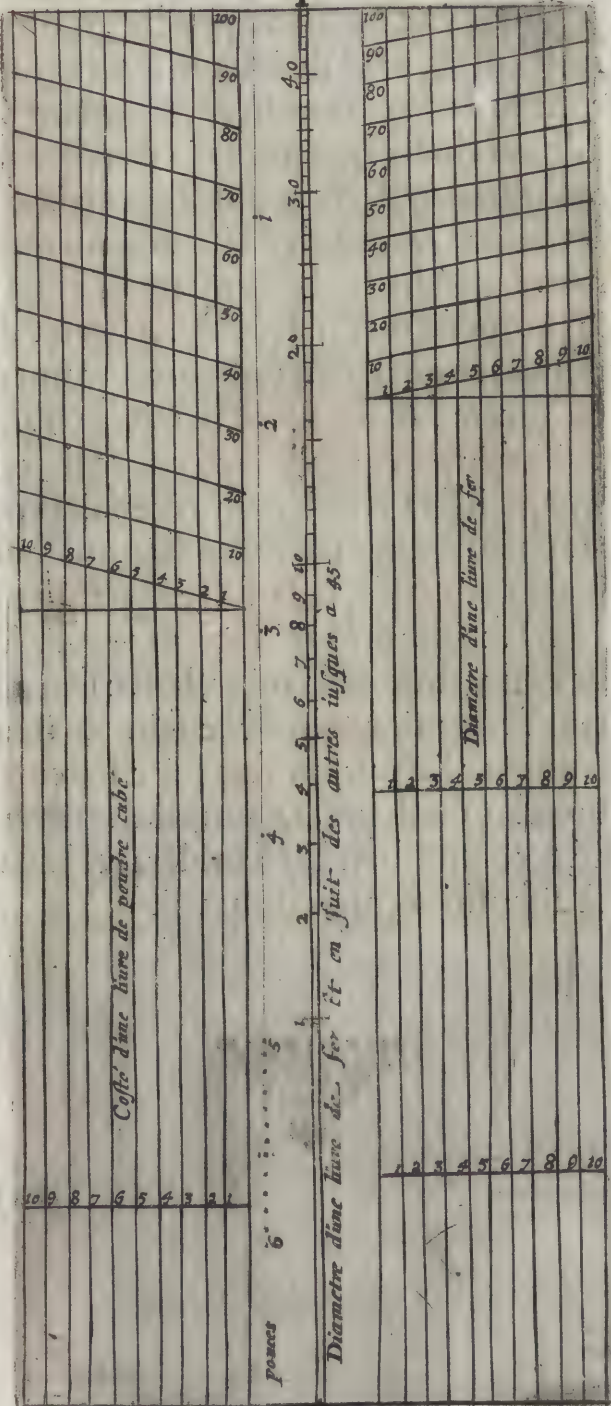 100
90
80
70
60
50
40
30
20
10
10 9 8 7 6 5 4 3 2 1
Costé d'une livre de poudre cube
10 9 8 7 6 5 4 3 2 1
1
2
3
4
5
6
pouces
40
30
20
10
9
8
7
6
5
4
3
2
1
Diametre d'une livre de fer Et en suit des autres iusques a 45
100
90
80
70
60
50
40
30
20
10
1 2 3 4 5 6 7 8 9 10
Diametre d'une livre de fer
1 2 3 4 5 6 7 8 9 10
1 2 3 4 5 6 7 8 9 10